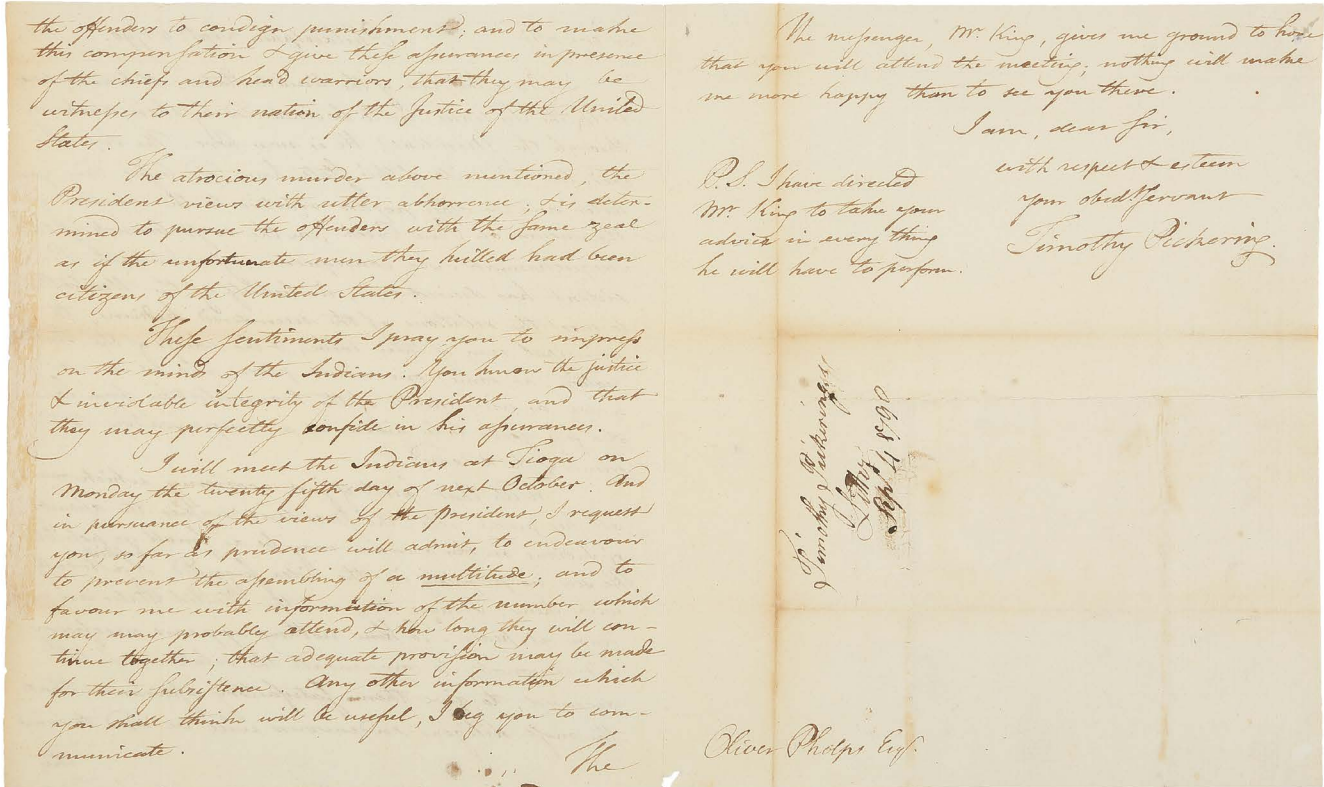 the offenders to condign punishment; and to make
this compensation & give these assurances in presence
of the chiefs and head warriors, that they may be
witnesses to their nation of the Justice of the United
States.
The atrocious murder above mentioned, the
President views with utter abhorrence; & is deter-
mined to pursue the offenders with the same zeal
as if the unfortunate men they killed had been
citizens of the United States.
These sentiments I pray you to impress
on the minds of the Indians. You know the justice
& inviolable integrity of the President and that
they may perfectly confide in his assurances.
I will meet the Indians at Tioga on
Monday the twenty fifth day of next October. And
in pursuance of the views of the president, I request
you, so far as prudence will admit, to endeavour
to prevent the assembling of a multitude; and to
favour me with information of the number which
may may probably attend, & how long they will con-
tinue together; that adequate provision may be made
for their subsistence. Any other information which
you shall think will be useful, I beg you to com-
municate.
The
The messenger, Mr. King, gives me ground to hope
that you will attend the meeting; nothing will make
me more happy than to see you there.
I am, dear Sir,
with respect & esteem
your obedt. servant
Timothy Pickering.
P.S. I have directed
Mr. King to take your
advice in every thing
he will have to perform.
Timothy Pickering's
Letter
Sept 4 1790
Oliver Phelps Esq.